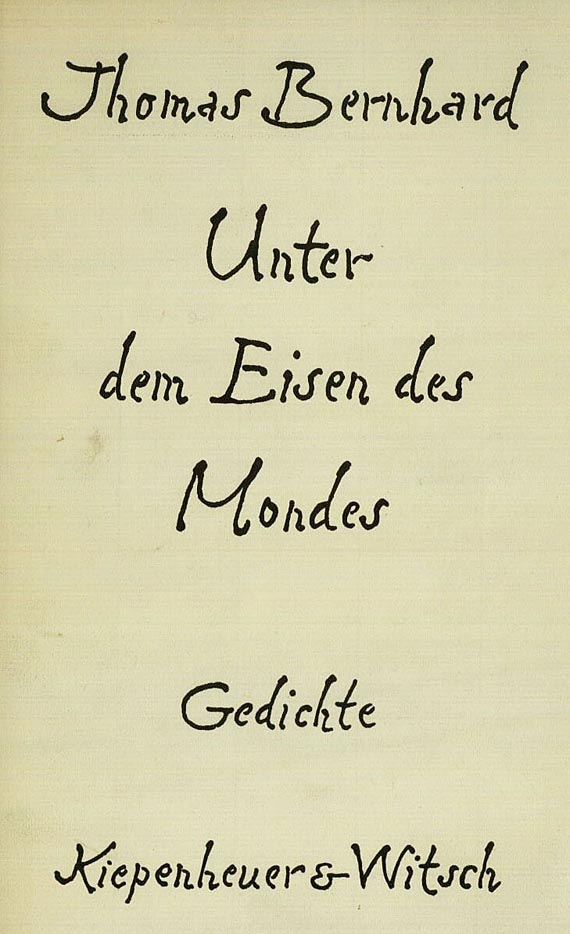 Thomas Bernhard
Unter
dem Eisen des
Mondes
Gedichte
Kiepenheuer & Witsch